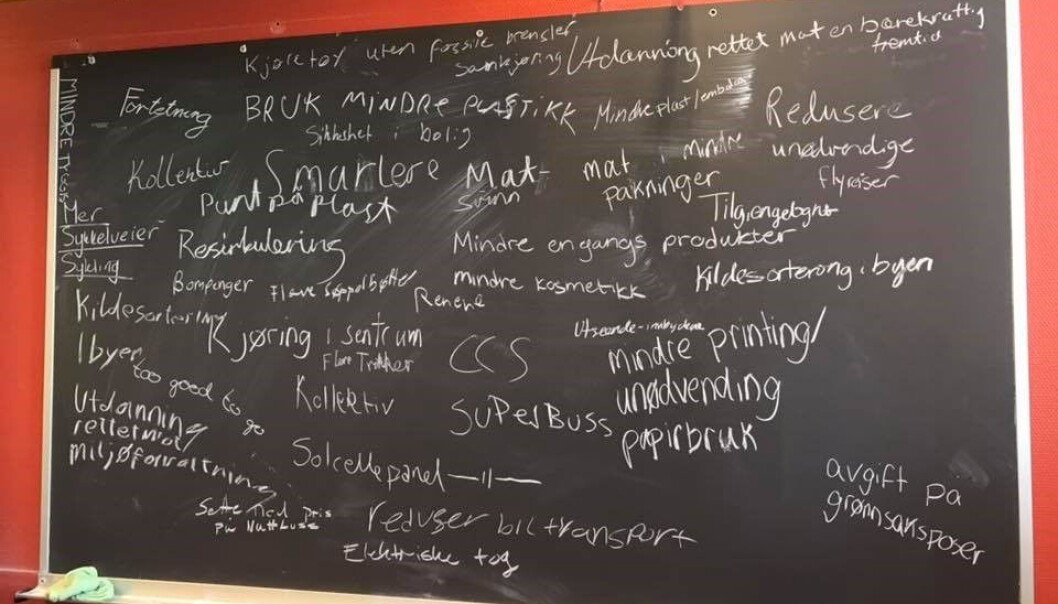 Kjøretøy uten fossile brensler
samkjøring
Utdanning rettet mot en bærekraftig
fremtid
MINDRE
Fortetning
BRUK MINDRE PLASTIKK
Mindre plast/
Redusere
unødvendige
flyreiser
i bolig
Kollektiv
Smartere
Mat-
svinn
mat i mindre
pakninger
Pant på plast
Mer
Sykkelveier
Sykling
Resirkulering
Mindre engangs produkter
Bompenger
Flere søppelbøtter
Renere
mindre kosmetikk
Kildesortering i byen
Kildesortering
I byen
Kjøring i sentrum
Flere Trikker
CCS
mindre printing/
unødvending
papirbruk
too good to
go
Kollektiv
SUPERBUSS
Utdanning
rettet mot
miljøforvaltning
Solcellepanel —11—
avgift på
grønnsaksposer
Sette ned pris
på Nattbuss
reduser biltransport
Elektriske tog